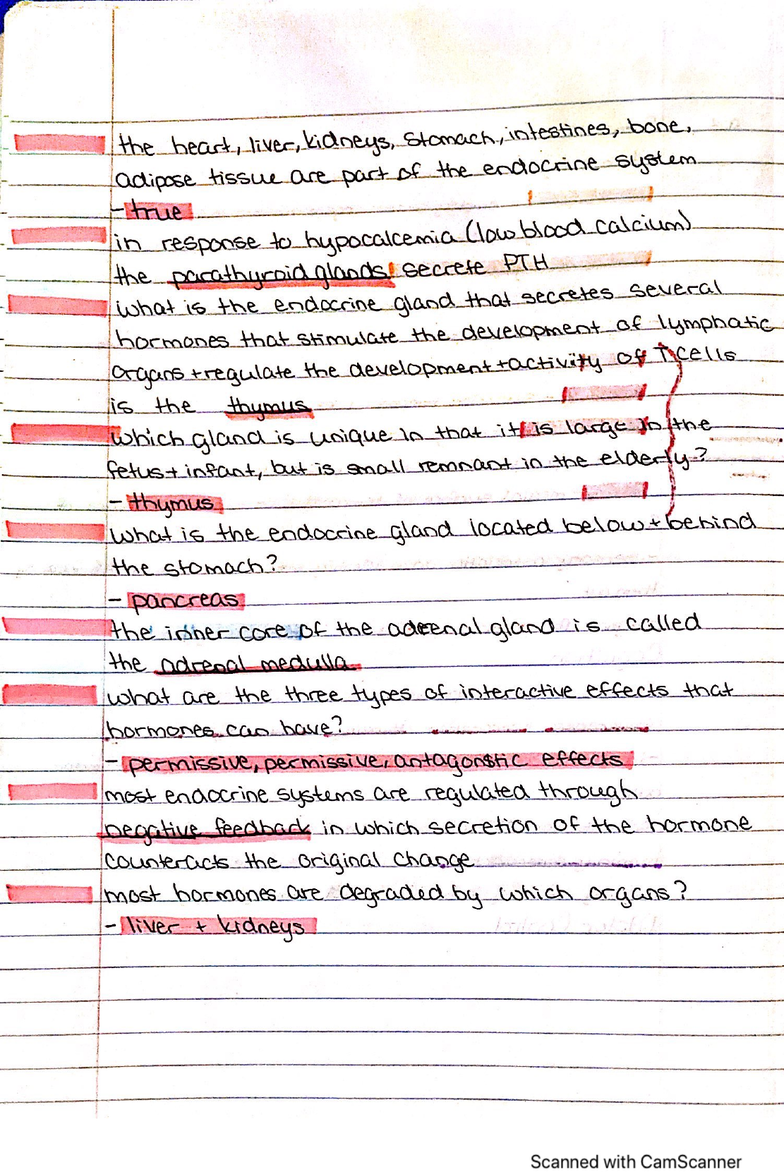 the heart, liver, kidneys, stomach, intestines, bone,
adipose tissue are part of the endocrine system
- true
in response to hypocalcemia (low blood calcium)
the parathyroid glands secrete PTH
what is the endocrine gland that secretes several
hormones that stimulate the development of lymphatic
organs + regulate the development + activity of T cells
is the thymus
which gland is unique in that it is large in the
fetus + infant, but is small remnant in the elderly?
- thymus
what is the endocrine gland located below + behind
the stomach?
- pancreas
the inner core of the adrenal gland is called
the adrenal medulla
what are the three types of interactive effects that
hormones can have?
- permissive, permissive, antagonstic effects
most endocrine systems are regulated through
negative feedback in which secretion of the hormone
counteracts the original change
most hormones are degraded by which organs?
- liver + kidneys
Scanned with CamScanner